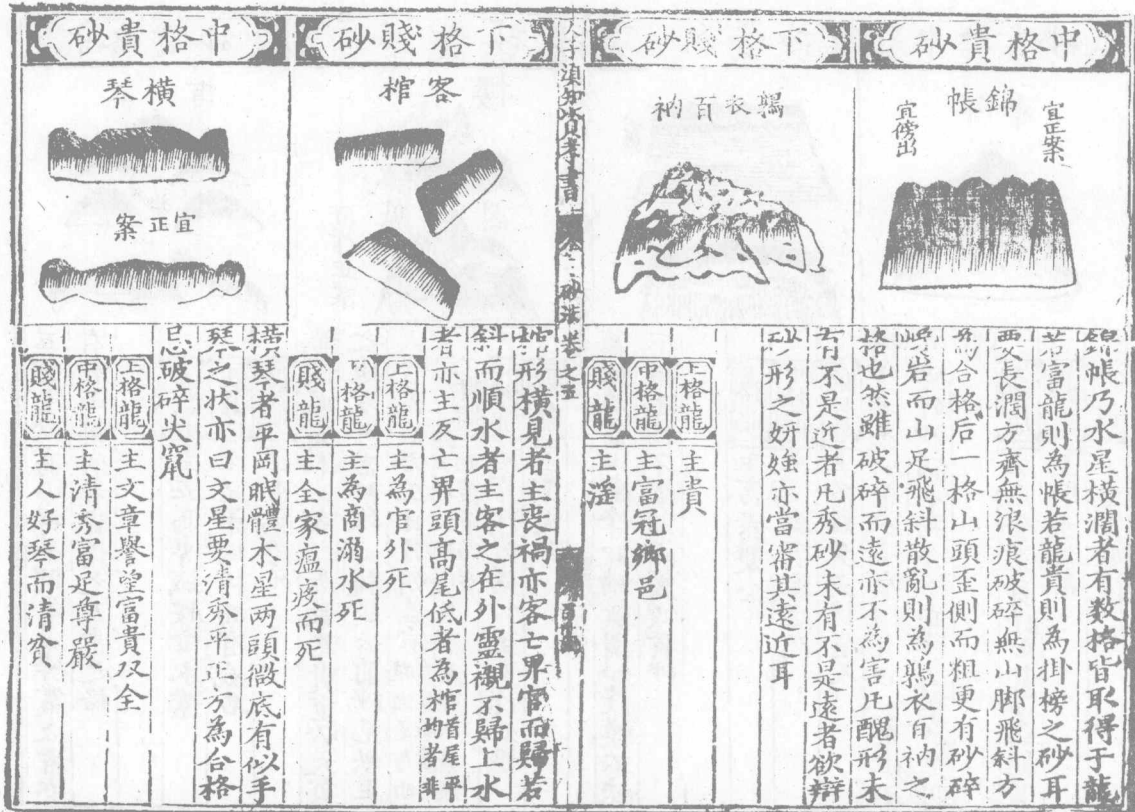 中格貴砂
錦帳
宜正案
宜傍出
錦帳乃水星橫濶者有数格皆取得于龍
若富龍則為帳若龍貴則為掛榜之砂耳
要長濶方齊無浪痕破碎無山脚飛斜方
為合格后一格山頭歪側而粗更有砂碎
岩而山足飛斜散亂則為鶉衣百衲之
格也然雖破碎而遠亦不為害凡醜形未
有不是近者凡秀砂未有不是遠者欲辯
砂形之妍媸亦當審其遠近耳
下格賤砂
鶉衣百衲
上格龍 主貴
中格龍 主富冠鄉邑
賤龍 主淫
人子湏知資孝書
砂法卷之五
下格賤砂
客棺
棺形橫見者主喪禍亦客亡畀官而歸若
斜而順水者主客之在外靈櫬不歸上水
者亦主反亡畀頭高尾低者為棺首尾平均者非
上格龍 主為官外死
中格龍 主為商溺水死
賤龍 主全家瘟疫而死
中格貴砂
橫琴
宜正案
橫琴者平岡眠體木星两頭微底有似手
琴之状亦曰文星要清秀平正方為合格
忌破碎尖竄
上格龍 主文章譽望富貴双全
中格龍 主清秀富足尊嚴
賤龍 主人好琴而清貧